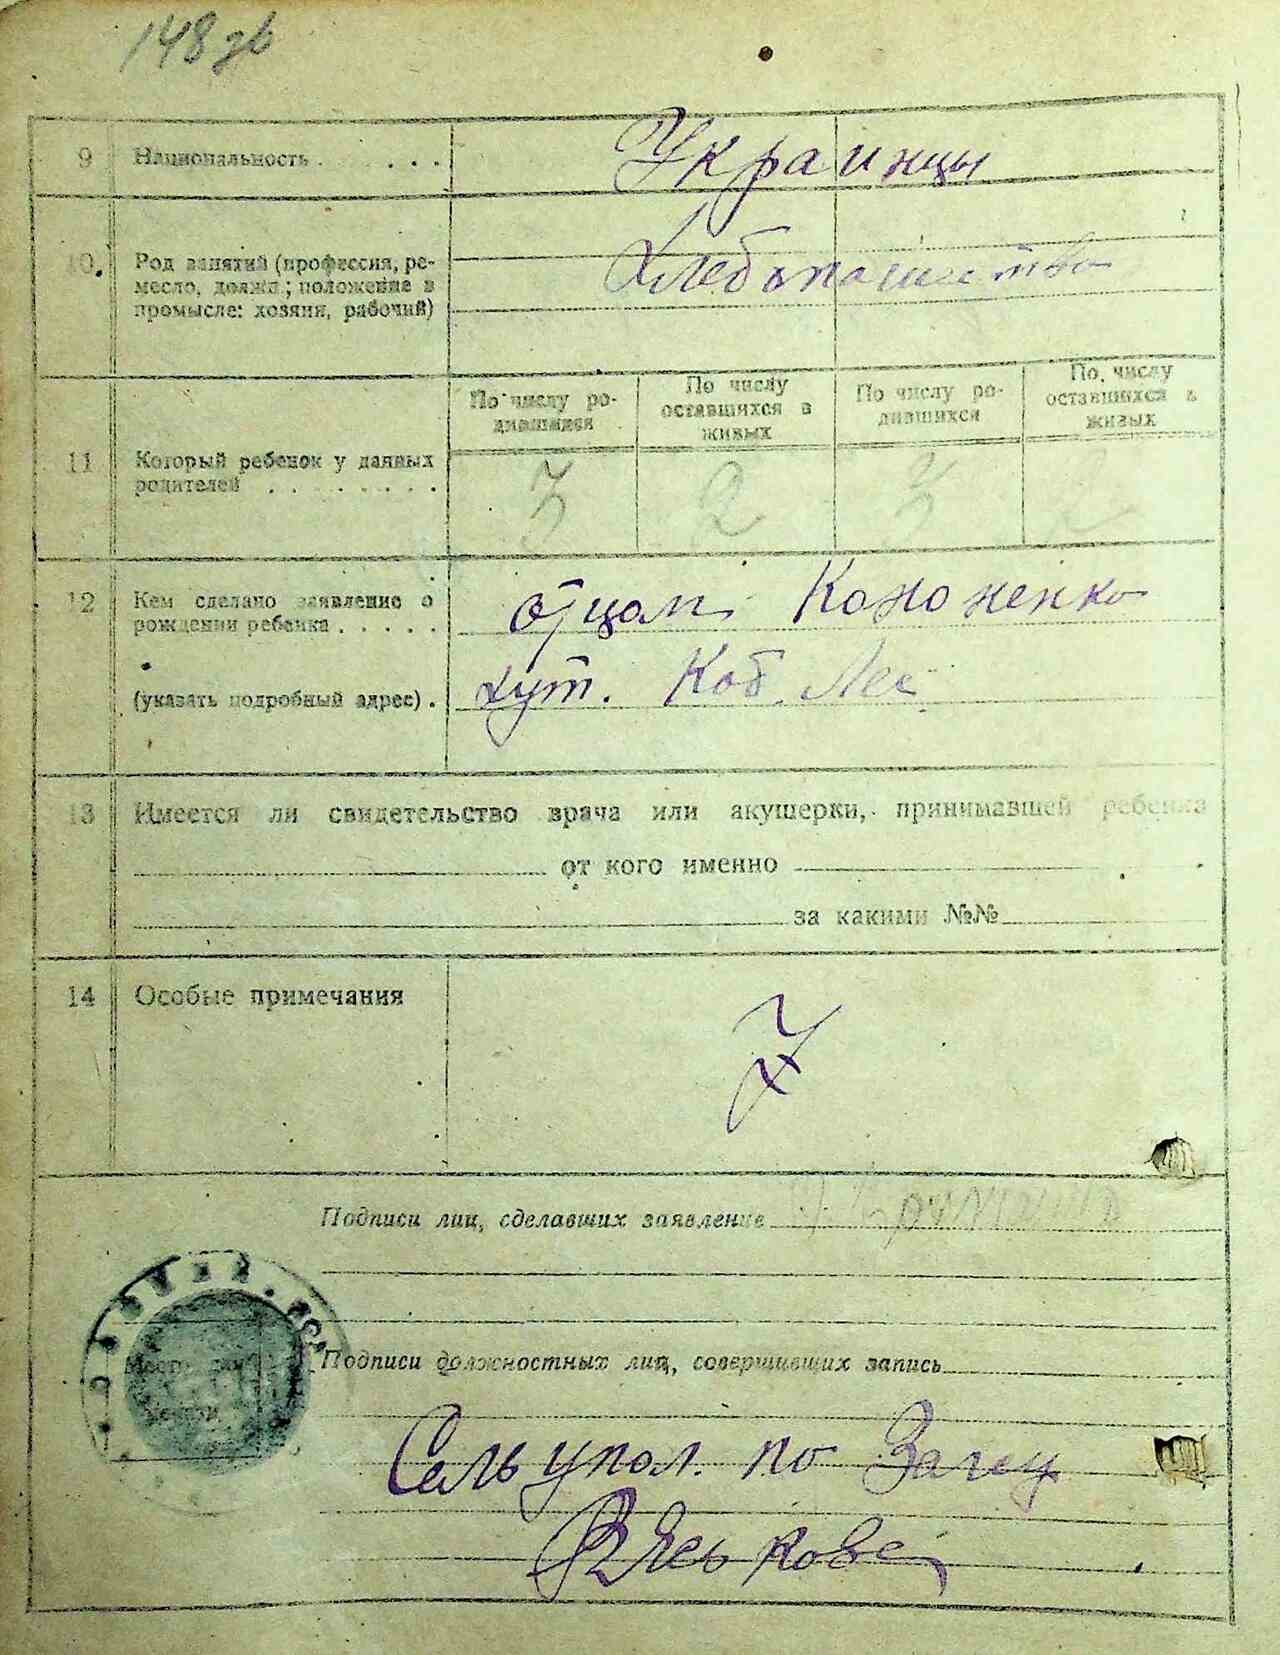 148 зв
9 Национальность . . . . . Украинцы
10. Род занятий (профессия, ре-
месло, должн; положение в
промысле: хозяин, рабочий)
Хлебопашество
По числу ро-
дившихся
По числу
оставшихся в
живых
По числу ро-
дившихся
По числу
оставшихся в
живых
11 Который ребенок у данных
родителей . . . . . . . .
3 2 3 2
12 Кем сделано заявление о
рождении ребенка . . . . .
отцом Кононенко
(указать подробный адрес) . хут. Коб. Лес
13 Имеется ли свидетельство врача или акушерки, принимавшей ребенка
от кого именно
за какими №№
14 Особые примечания
Подписи лиц, сделавших заявление
Место
печати
Подписи должностных лиц, совершивших запись
Сель упол. по Загсу